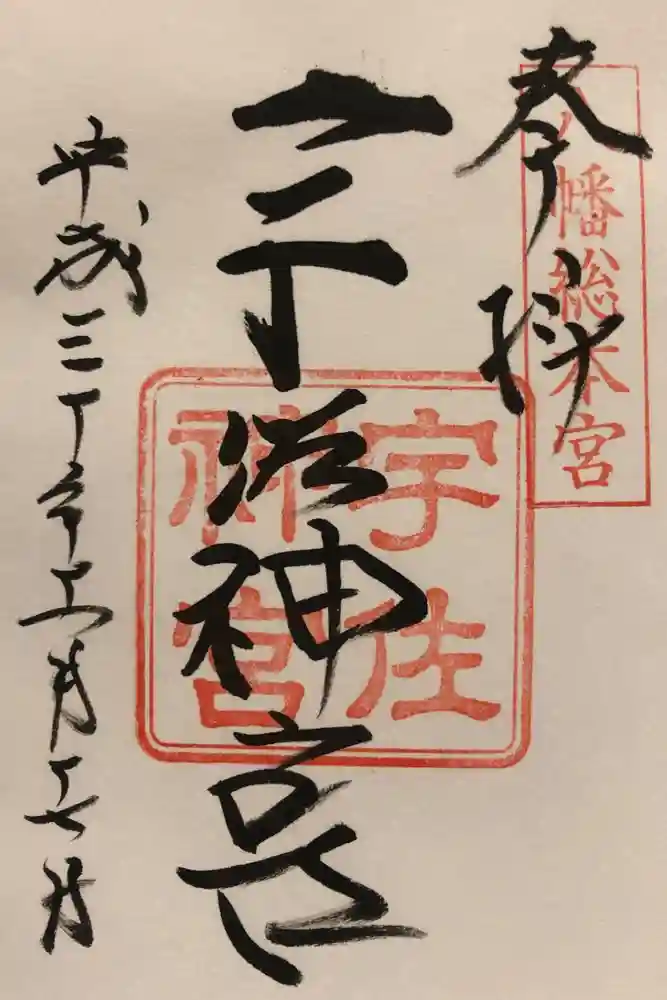 奉拝
八幡総本宮
宇佐神宮
宇佐神宮
平成三十年十一月十七日